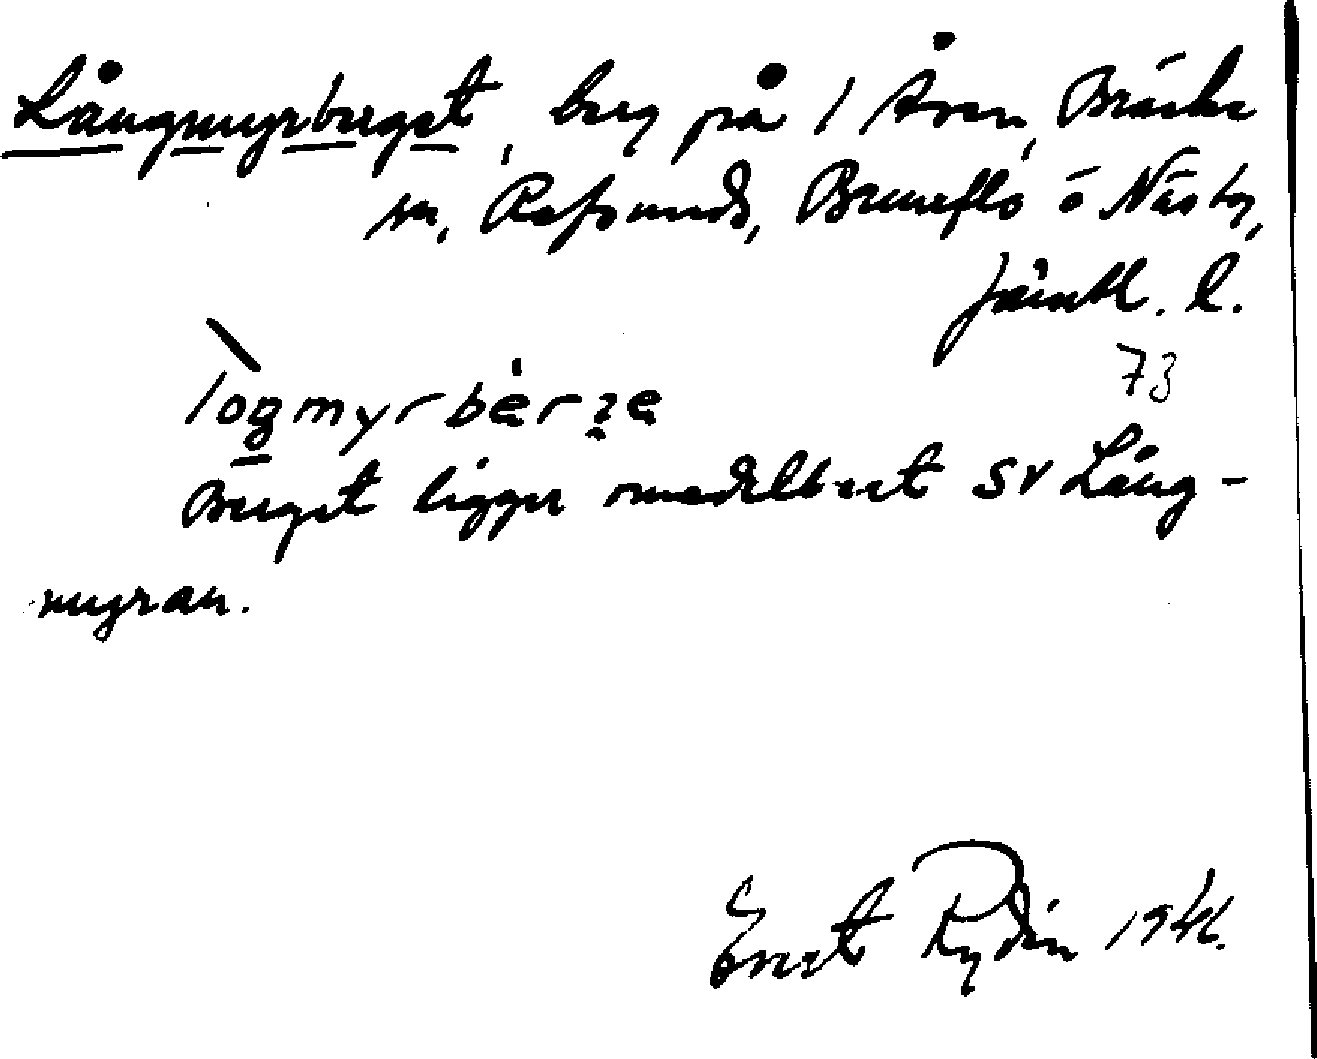 Långmyrberget, berg på / Åsen, Bräcke
sn, Refsunds, Brunflo o Näsby,
Jämtl. l.
73
loŋmyrbèrʒe
Berget ligger omedelbart SV Lång-
myran.
Ernst Rydin 1941.